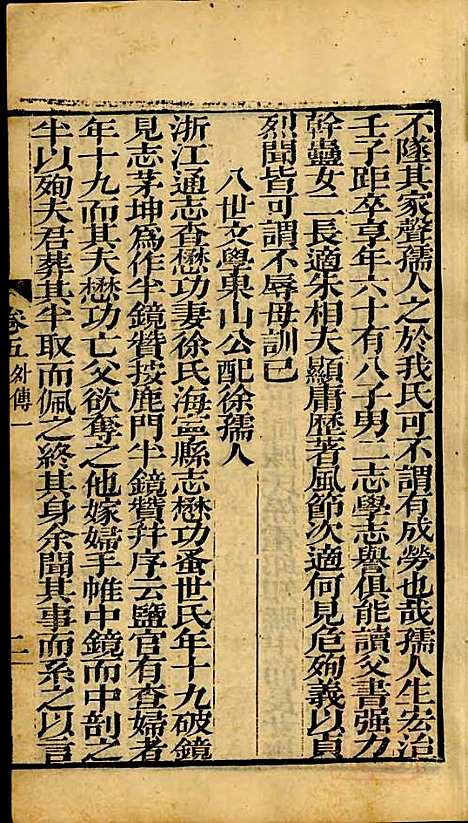 不墜其家聲孺人之於我氏可不謂有成勞也哉孺人生宏治
壬子距卒享年六十有八子男二志學志譽俱能讀父書强力
幹蠱女二長適朱相夫顯庸歷著風節次適何見危殉義以貞
烈聞皆可謂不辱母訓已
八世文學東山公配徐孺人
浙江通志查懋功妻徐氏海寧縣志懋功蚤世氏年十九破鏡
見志茅坤爲作半鏡贊按鹿門半鏡贊幷序云鹽官有查婦者
年十九而其夫懋功亡父欲奪之他嫁婦手帷中鏡而中剖之
半以殉夫君葬其半取而佩之終其身余聞其事而系之以言
卷五外傳一
二